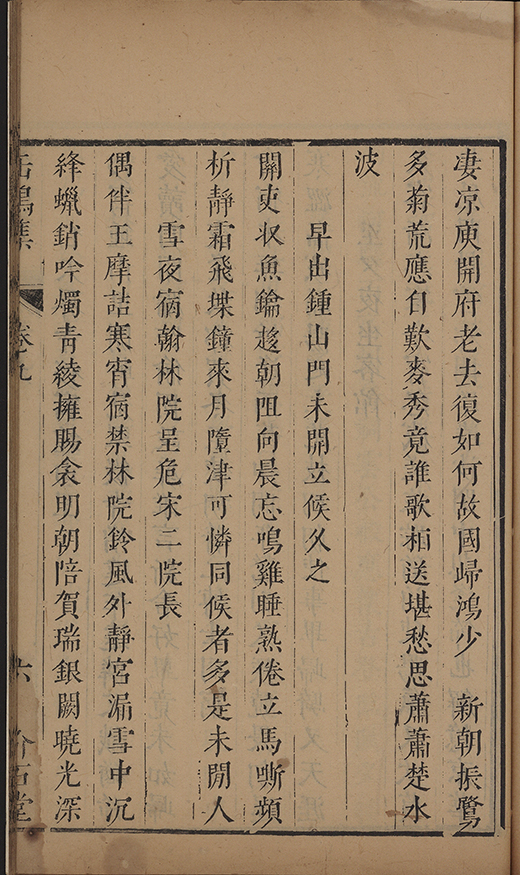 凄凉庾開府老去復如何故國歸鴻少　新朝振鷺
多菊荒應自歎麥秀竟誰歌相送堪愁思蕭蕭楚水
波
早出鍾山門未開立候久之
關吏収魚鑰趍朝阻向晨忘鳴雞睡熟倦立馬嘶頻
柝靜霜飛堞鐘來月墮津可憐同候者多是未閒人
雪夜宿翰林院呈危宋二院長
偶伴王摩詰寒宵宿禁林院鈴風外靜宮漏雪中沉
絳蠟銷吟燭青綾擁賜衾明朝陪賀瑞銀闕曉光深
缶鳴集　卷九　六　介石堂